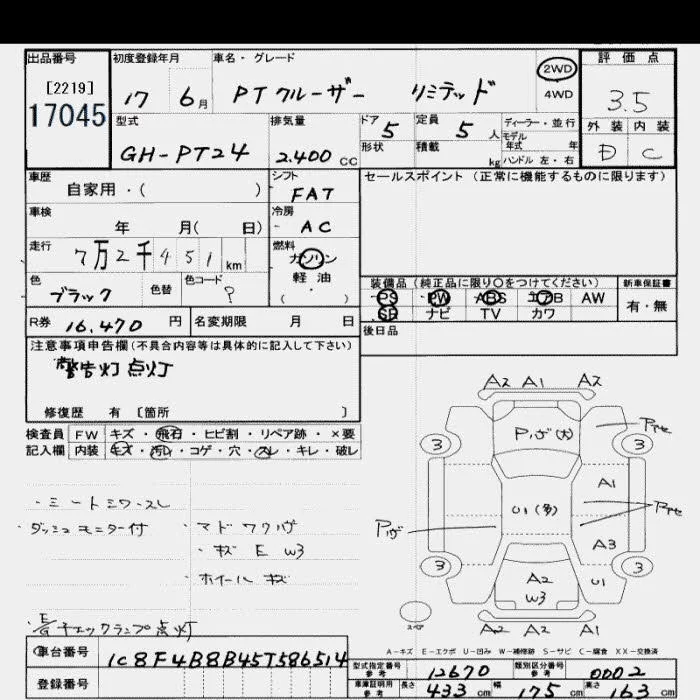 出品番号 初度登録年月 車名・グレード 2WD 評価点
[2219] 17 6月 PTクルーザー リミテッド 4WD 3.5
17045 型式 排気量 ドア 5 定員 5人 ディーラー・並行 外装 内装
GH-PT24 2.400 CC 形状 積載 kg モデル年式 年 D C
ハンドル 左・右
車歴 シフト セールスポイント（正常に機能するものに限ります）
自家用・( ) FAT
車検 年 月( 日) 冷房 AC
走行 7万2千451km 燃料 ガソリン
軽油
( ・ )
色 ブラック 色替 色コード ?
装備品（純正品に限り○をつけてください） 新車保証書
PS PW ABS エアB AW 有・無
SR ナビ TV カワ
R券 16.470円 名変期限 月 日 後日品
注意事項申告欄（不具合内容等は具体的に記入して下さい）
警告灯点灯
修復歴 有 〔箇所 〕
検査員 FW キズ・飛石・ヒビ割・リペア跡・×要
記入欄 内装 キズ・汚レ・コゲ・穴・スレ・キレ・破レ
A2 A1 A2
Pハゲ(大)
3 3
A1
U1(多)
Pハゲ
A3
3 3
A2 U1
W3
A2 A2 A1
スペア
・シートシワ・スレ
・ダッシュモニター付 ・マドワクハゲ
・キズ E W3
・ホイールキズ
・E/Gチェックランプ点灯
A－キズ E－エクボ U－凹み W－補修跡 S－サビ C－腐食 XX－交換済
車台番号 1C8F4B8B45T586514 型式指定番号 参考 12670 類別区分番号 参考 0002
登録番号 車庫証明用 参考 長さ 433cm 幅 175cm 高さ 163cm